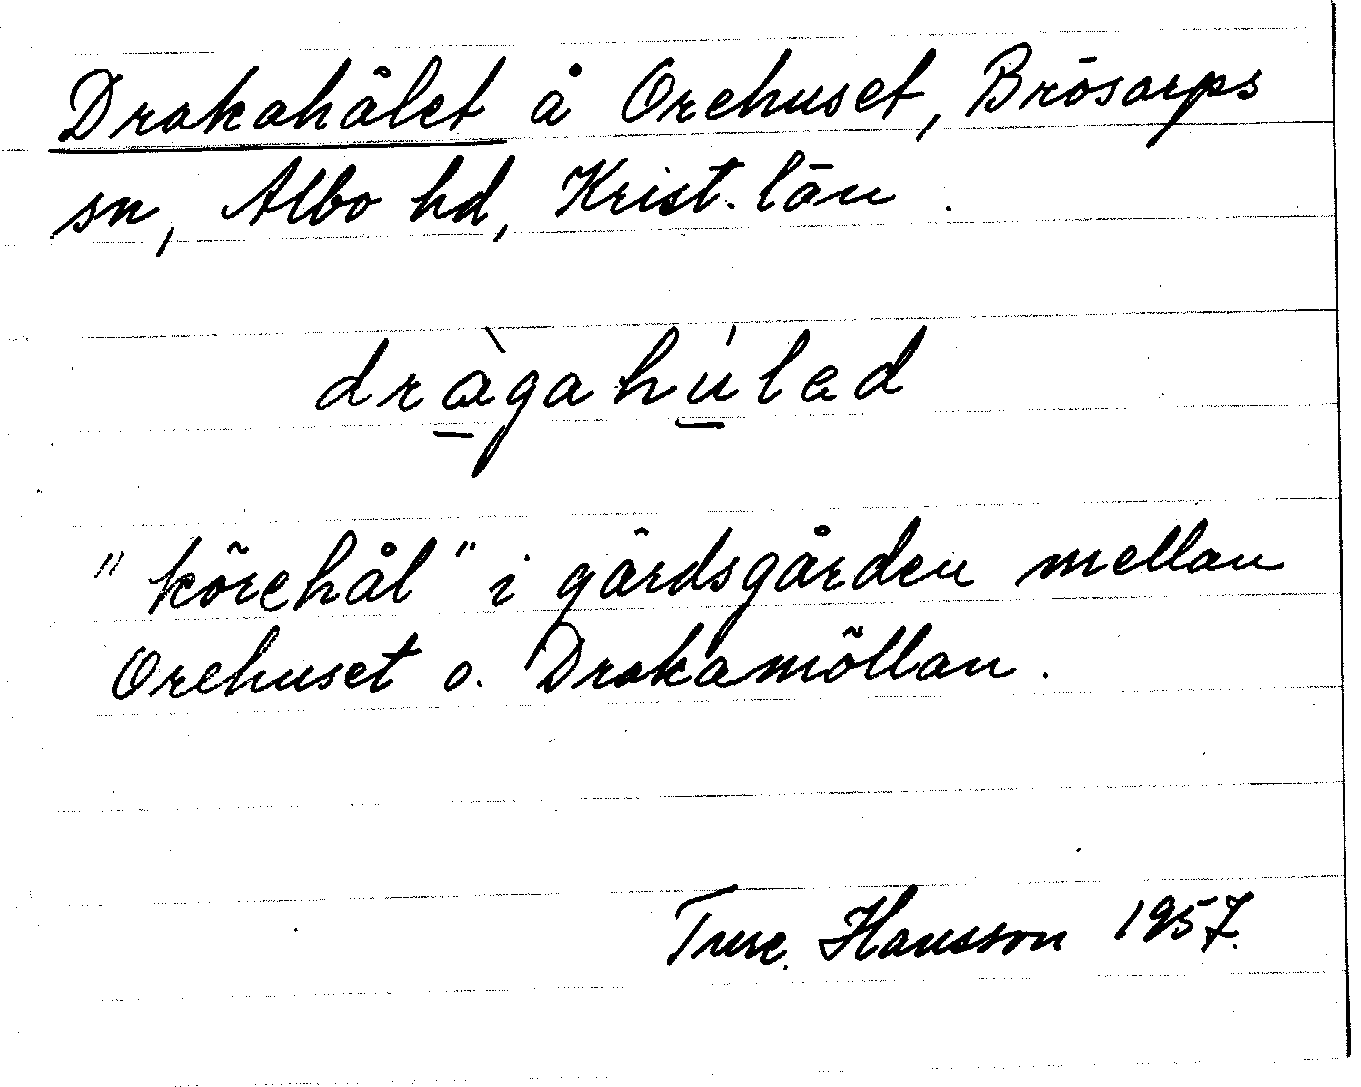 Drakahålet å Orehuset, Brösarps
sn, Albo hd, Krist. län.
dràgahúled
"körehål" i gärdsgården mellan
Orehuset o. Drakamöllan.
Ture Hansson 1957.